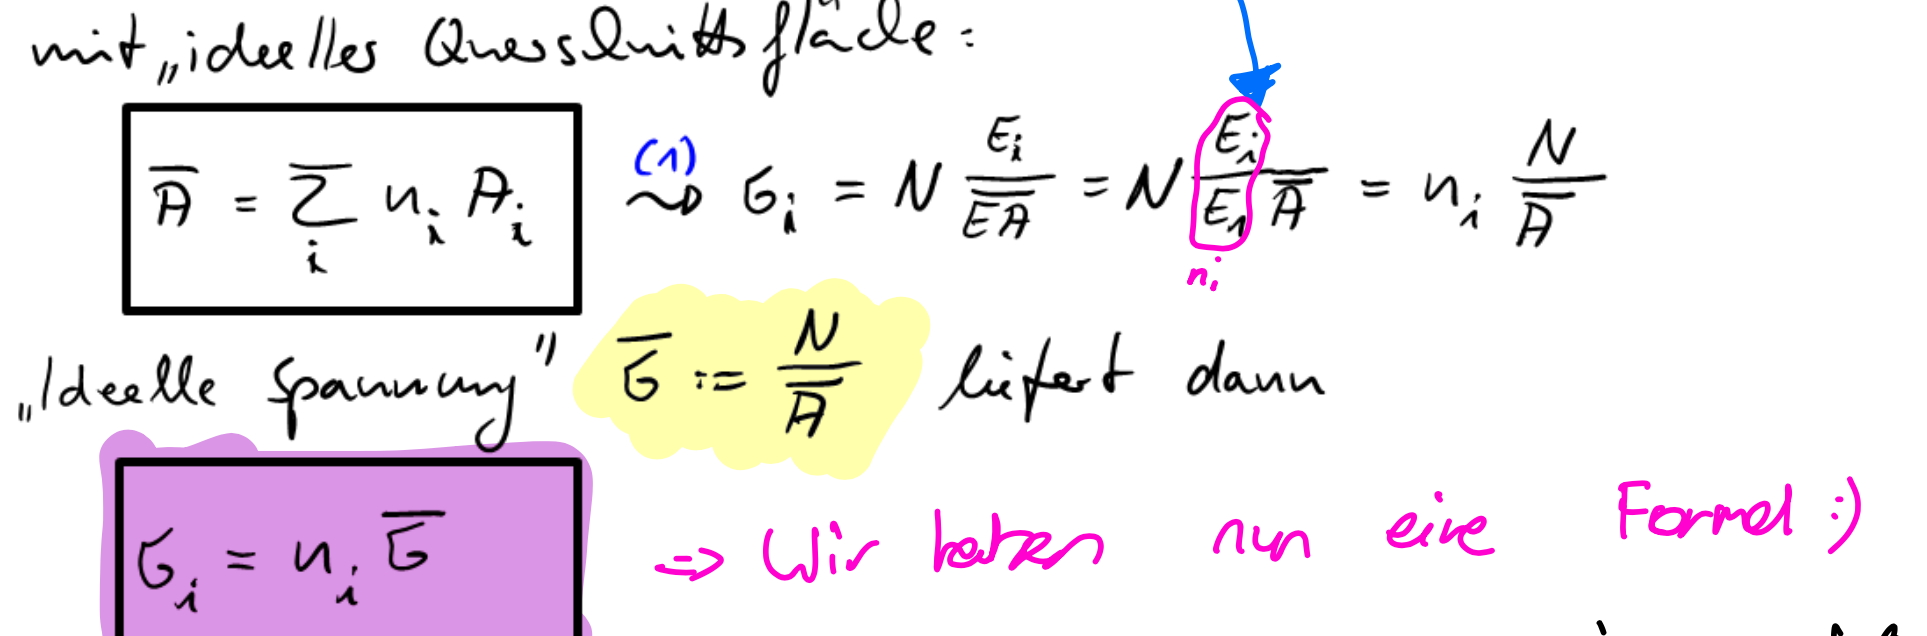 mit „ideelles Querschnittsfläche:
A̅ = Σ_i n_i A_i (1) ⇝ σ_i = N E_i / E̅A̅ = N E_i / (E_1 A̅) = n_i N / A̅
n_i
„Ideelle Spannung" σ̅ := N / A̅ liefert dann
σ_i = n_i σ̅ => Wir haben nun eine Formel :)